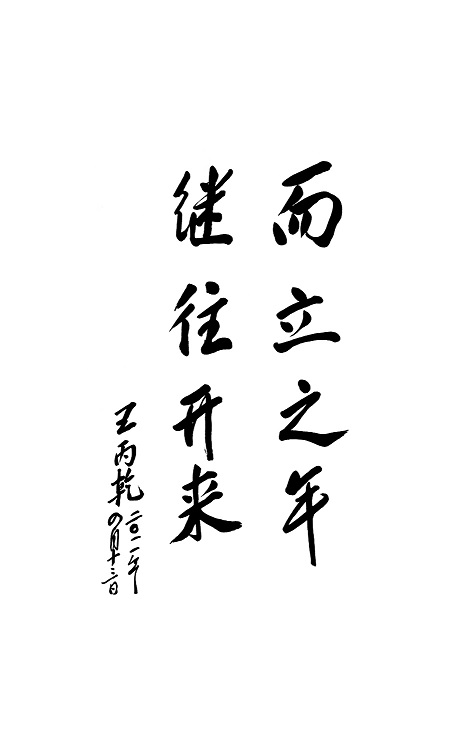 而立之年
继往开来
王丙乾
二〇一一年
四月十三日